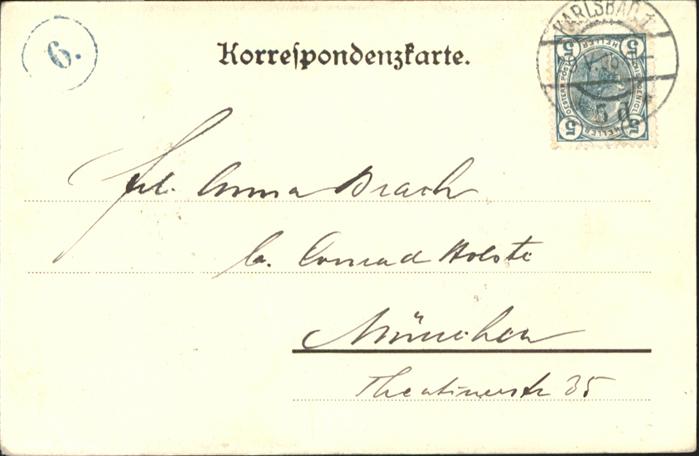 6.
Korrespondenzkarte.
KARLSBAD 1
5 HELLER 5
5 HELLER 5
Frl. Anna Brach
b. Conrad Holste
München
Theatinerstr 35